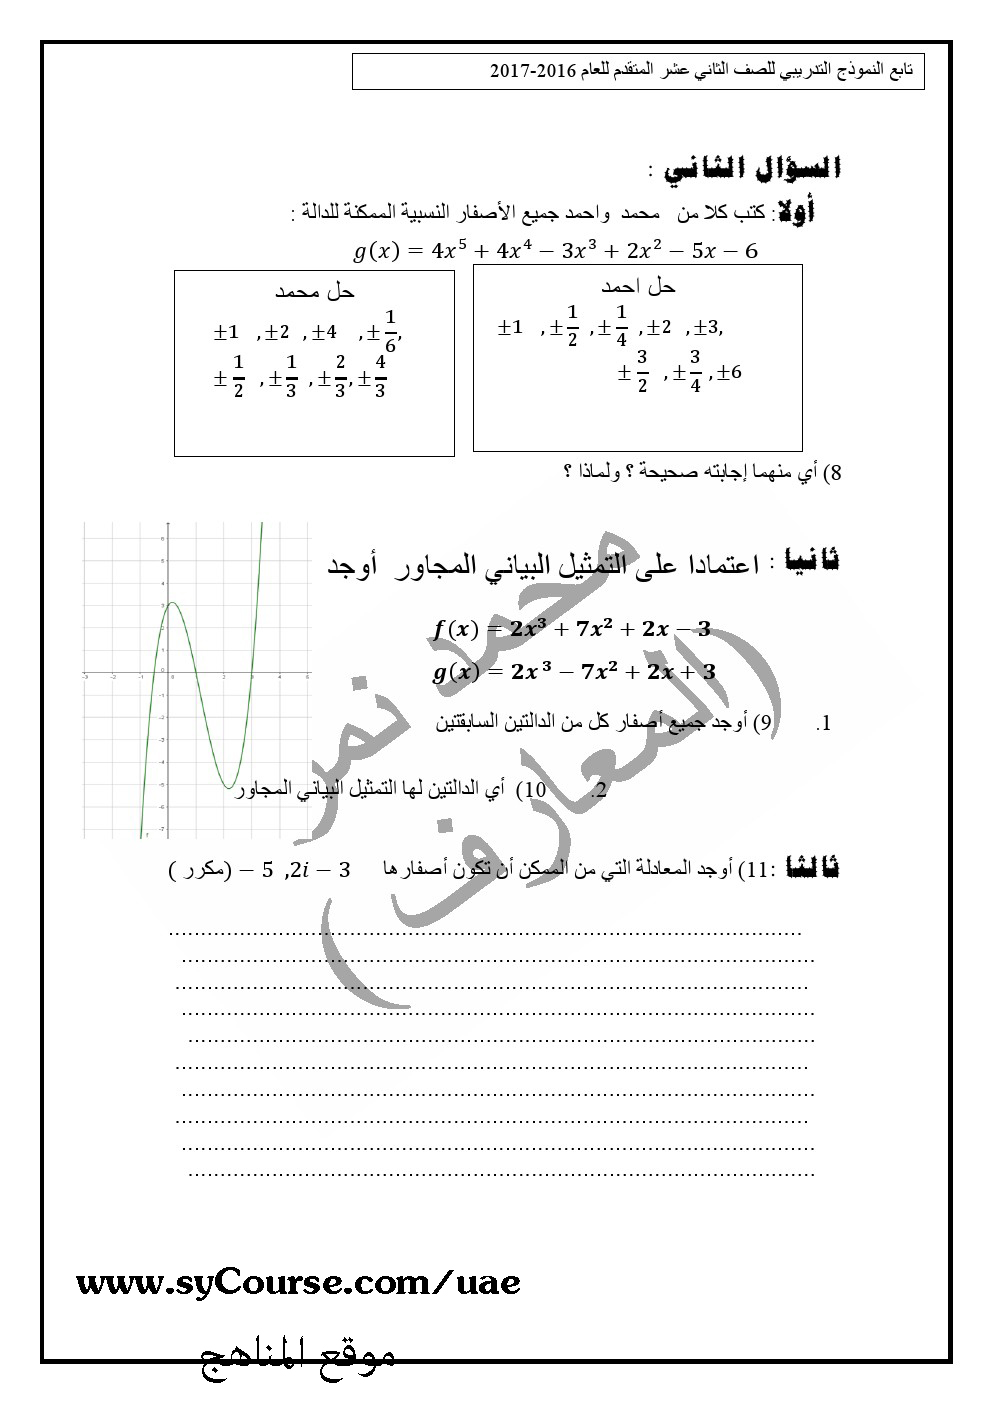 تابع النموذج التدريبي للصف الثاني عشر المتقدم للعام 2016-2017
السؤال الثاني :
أولا: كتب كلا من محمد واحمد جميع الأصفار النسبية الممكنة للدالة :
g(x) = 4x⁵ + 4x⁴ − 3x³ + 2x² − 5x − 6
حل احمد
±1 ,±1/2 ,±1/4 ,±2 ,±3,
±3/2 ,±3/4 ,±6
حل محمد
±1 ,±2 ,±4 ,±1/6,
±1/2 ,±1/3 ,±2/3,±4/3
8) أي منهما إجابته صحيحة ؟ ولماذا ؟
ثانيا : اعتمادا على التمثيل البياني المجاور أوجد
f(x) = 2x³ + 7x² + 2x − 3
g(x) = 2x³ − 7x² + 2x + 3
1. 9) أوجد جميع أصفار كل من الدالتين السابقتين
2. 10) أي الدالتين لها التمثيل البياني المجاور
ثالثا :11) أوجد المعادلة التي من الممكن أن تكون أصفارها 2i − 3, − 5 (مكرر )
محمد نمر
(المعارف)
www.syCourse.com/uae
موقع المناهج